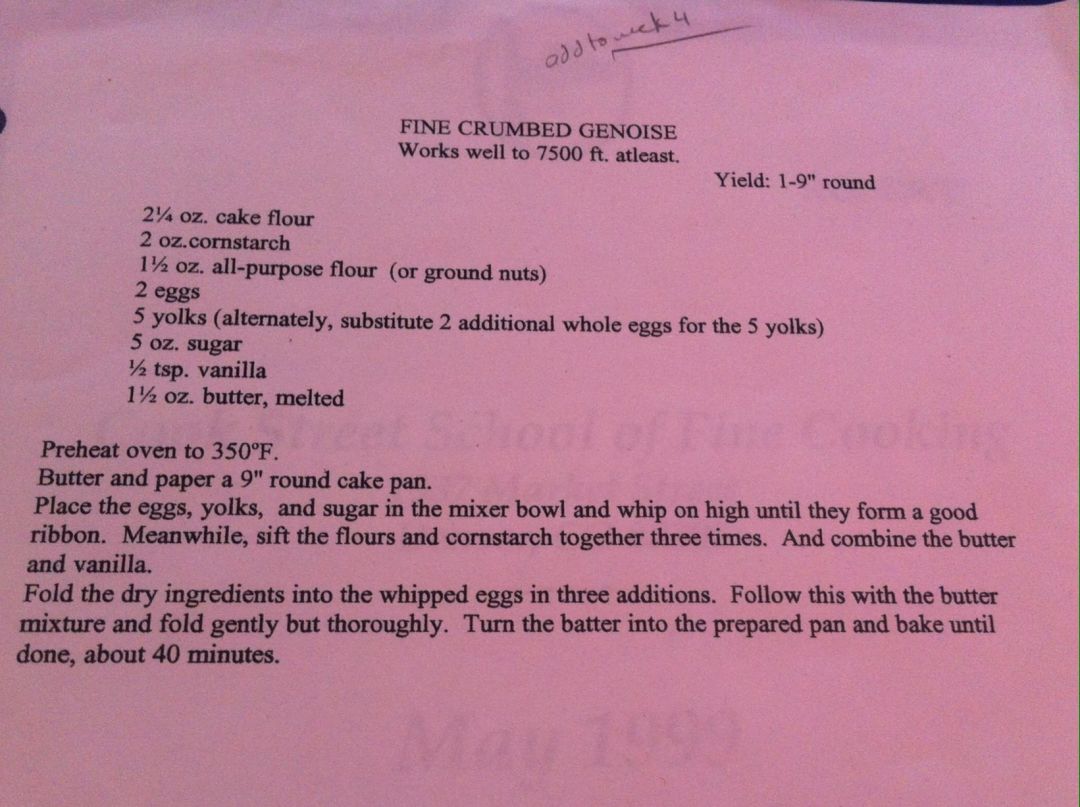 add to week 4
FINE CRUMBED GENOISE
Works well to 7500 ft. atleast.
Yield: 1-9" round
2¼ oz. cake flour
2 oz.cornstarch
1½ oz. all-purpose flour (or ground nuts)
2 eggs
5 yolks (alternately, substitute 2 additional whole eggs for the 5 yolks)
5 oz. sugar
½ tsp. vanilla
1½ oz. butter, melted
Cook Street School of Fine Cooking
Market Street
Preheat oven to 350ºF.
Butter and paper a 9" round cake pan.
Place the eggs, yolks, and sugar in the mixer bowl and whip on high until they form a good
ribbon. Meanwhile, sift the flours and cornstarch together three times. And combine the butter
and vanilla.
Fold the dry ingredients into the whipped eggs in three additions. Follow this with the butter
mixture and fold gently but thoroughly. Turn the batter into the prepared pan and bake until
done, about 40 minutes.
May 1999